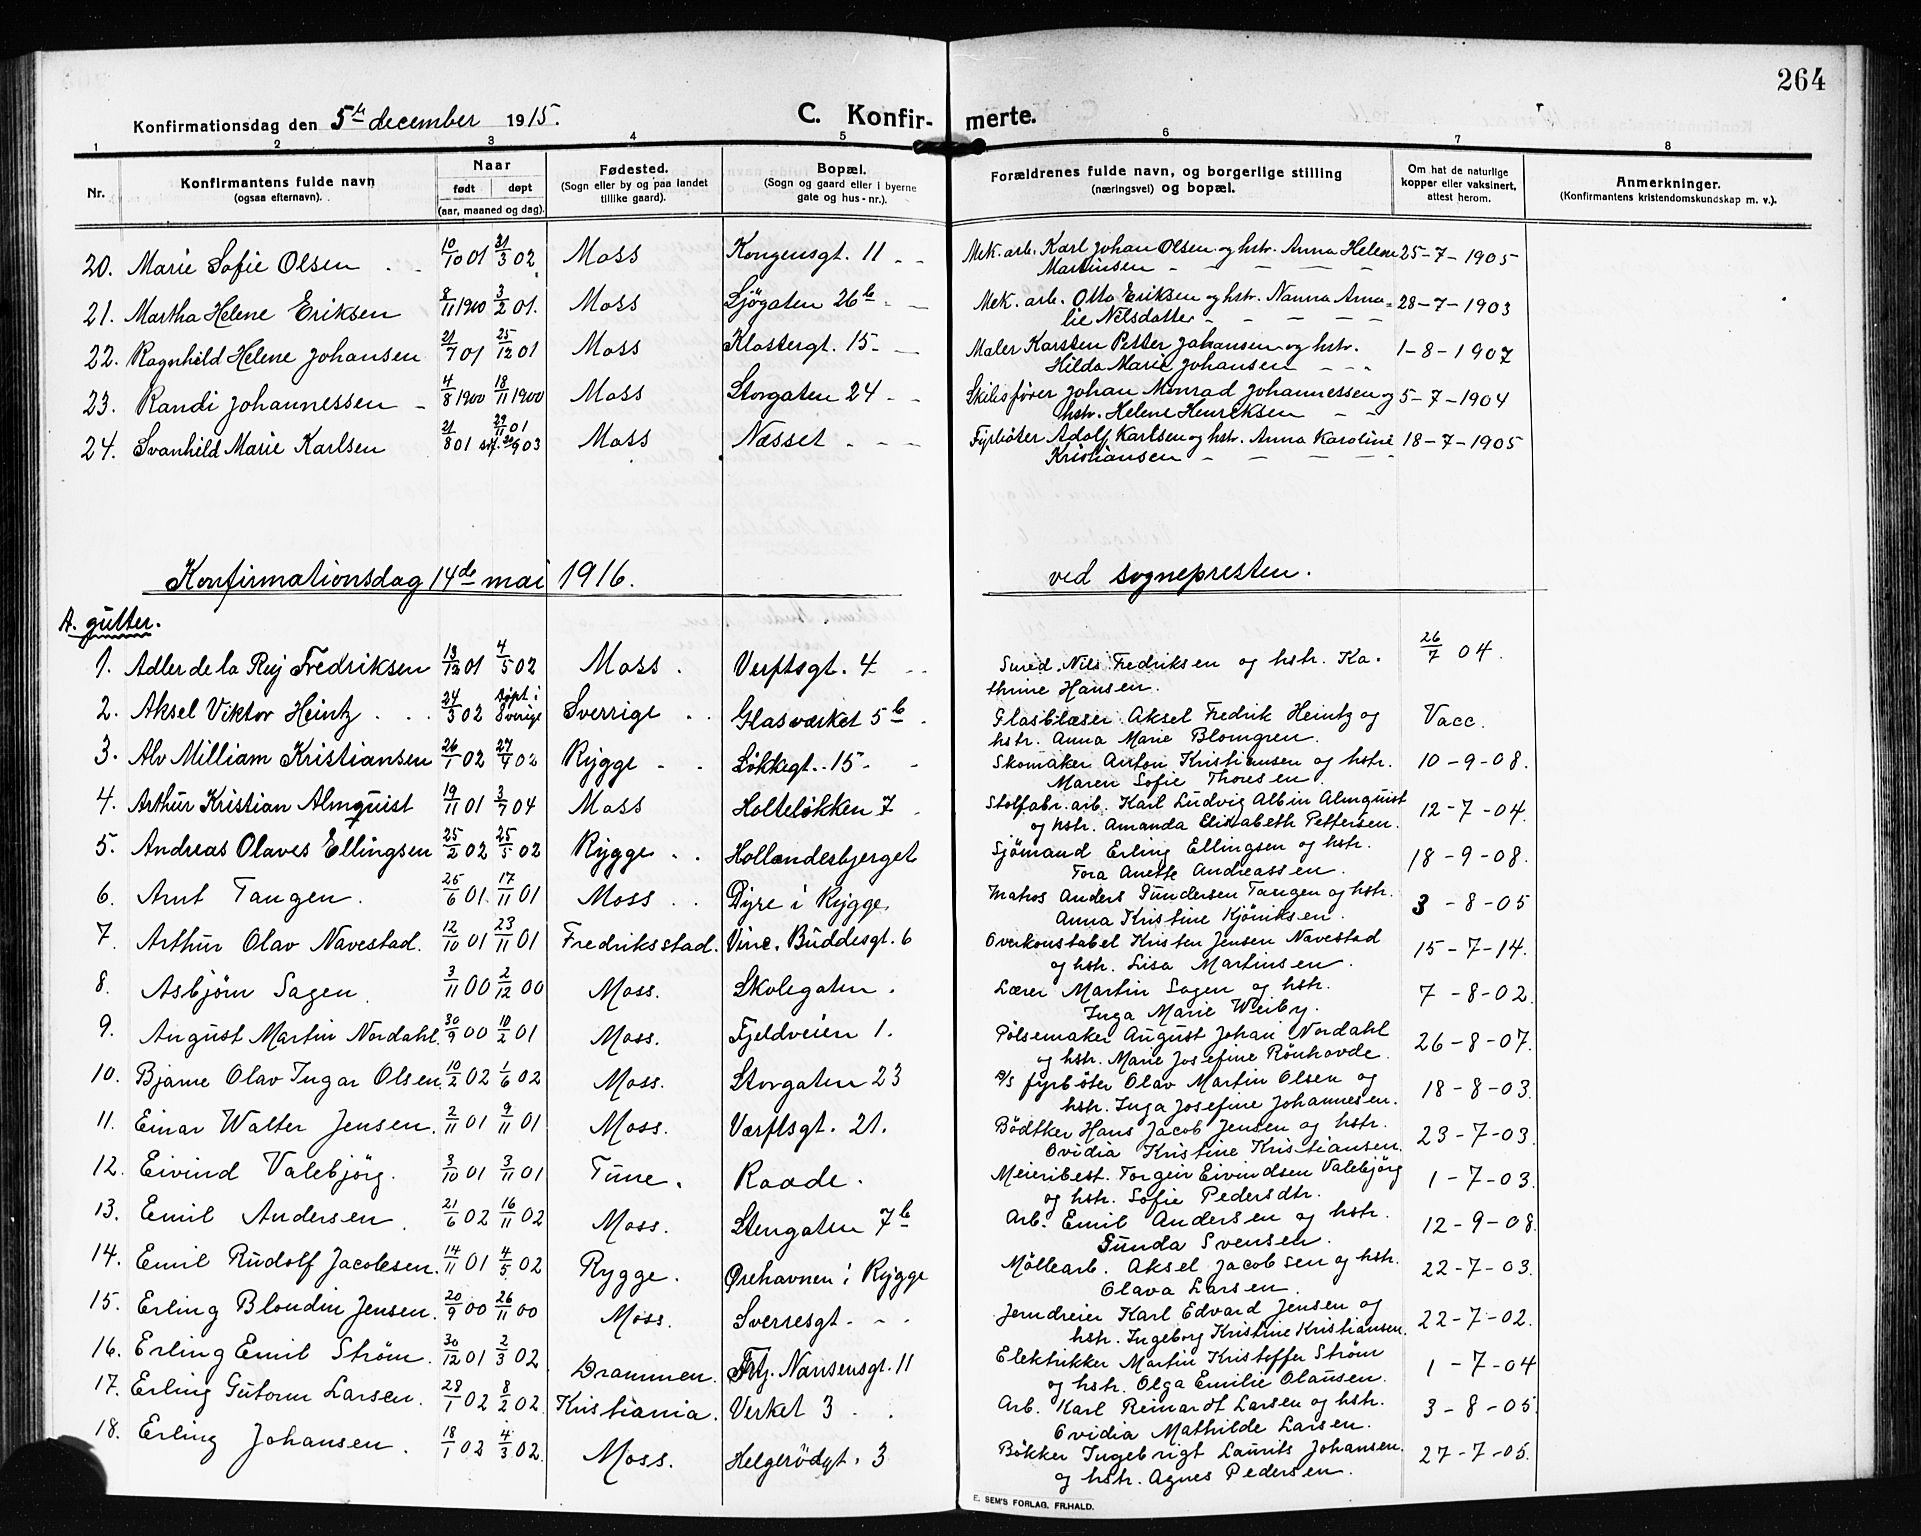 264
Konfirmationsdag den 5te december 1915. C. Konfir- merte.
1 2 3 4 5 6 7 8
Nr. Konfirmantens fulde navn (ogsaa efternavn). Naar født døpt (aar, maaned og dag). Fødested. (Sogn eller by og paa landet tillike gaard). Bopæl. (Sogn og gaard eller i byerne gate og hus-nr.). Forældrenes fulde navn, og borgerlige stilling (næringsvei) og bopæl. Om hat de naturlige kopper eller vaksinert, attest herom. Anmerkninger. (Konfirmantens kristendomskundskap m. v.).
20. Marie Sofie Olsen 10/10 01 31/3 02 Moss Kongensgt. 11 Mek. arb. Karl Johan Olsen og hstr. Anna Helene 25-7-1905
Martinsen
21. Martha Helene Eriksen 8/11 1900 3/2 01. Moss Sjøgaten 26b Mek. arb. Otto Eriksen og hstr. Nanna Ama- 28-7-1903
lie Nilsdatter
22. Ragnhild Helene Johansen 21/7 01 25/12 01 Moss Klostergt. 15 Maler Karsten Petter Johansen og hstr. 1-8-1907
Hilda Marie Johansen
23. Randi Johannessen 4/8 1900 18/11 1900 Moss Storgaten 24 Skibsfører Johan Monrad Johannessen og 5-7-1904
hstr. Helene Henriksen
24. Svanhild Marie Karlsen 21/8 01 29/11 01 Moss Næsset Fyrbøter Adolf Karlsen og hstr. Anna Karoline 18-7-1905
Kristiansen
Konfirmationsdag 14de mai 1916. ved sognepresten.
A. gutter.
1. Adler de la Rey Fredriksen 13/12 01 4/5 02 Moss. Verftsgt. 4 Smed Nils Fredriksen og hstr. Ka- 26/7 04.
thrine Hansen.
2. Aksel Viktor Heintz 24/3 02 døpt i Sverige Sverrige Glasværket 5b Glasblæser Aksel Fredrik Heintz og Vacc.
hstr. Anna Marie Blomgren.
3. Alv William Kristiansen 26/1 02 27/4 02 Rygge Løkkegt. 15 Skomaker Anton Kristiansen og hstr. 10-9-08.
Maren Sofie Thoresen.
4. Arthur Kristian Almquist 19/11 01 3/7 04 Moss Holteløkken 7 Stolfabr. arb. Karl Ludvig Albin Almquist 12-7-04.
og hstr. Amanda Elisabeth Pettersen.
5. Andreas Olaves Ellingsen 25/2 02 25/5 02 Rygge Hollenderbjerget Sjømand Erling Ellingsen og hstr. 18-9-08.
Tora Anette Andreassen.
6. Arnt Tangen. 25/6 01. 17/11 01 Moss Dyre i Rygge Matros Anders Gundersen Tangen og hstr. 3-8-05
Anna Kristine Kjøniksen.
7. Arthur Olav Navestad. 12/10 01 23/11 01 Fredriksstad. Vinc. Buddesgt. 6 Overkonstabel Kristen Jensen Navestad 15-7-14.
og hstr. Lisa Martinsen.
8. Asbjørn Sagen. 3/11 00 2/12 00 Moss. Skolegaten. Lærer Martin Sagen og hstr. 7-8-02.
Inga Marie Weiby.
9. August Martin Nordahl. 30/9 00 10/2 01 Moss. Fjeldveien 1. Pølsemaker August Johan Nordahl 26-8-07.
og hstr. Marie Josefine Rønhovde.
10. Bjarne Olav Ingar Olsen. 10/2 02 1/6 02 Moss. Storgaten 23 fyrbøter Olav Martin Olsen og 18-8-03.
hstr. Inga Josefine Johannesen.
11. Einar Walter Jensen. 2/11 01 9/11 01 Moss. Værftsgt. 21. Bødtker Hans Jacob Jensen og hstr. 23-7-03.
Ovidia Kristine Kristiansen.
12. Eivind Valebjørg. 3/10 01 3/11 01 Tune. Raade. Meieribest. Torgeir Eivindsen Valebjørg 1-7-03.
og hstr. Sofie Pedersdtr.
13. Emil Andersen. 21/6 02 16/11 02 Moss. Stengaten 7b Arb. Emil Andersen og hstr. 12-9-08.
Gunda Svensen.
14. Emil Rudolf Jacobsen. 14/11 01 4/5 02 Rygge. Ørehavnen i Rygge Møllearb. Aksel Jacobsen og hstr. 22-7-03.
Olava Larsen.
15. Erling Blondin Jensen. 20/9 00 26/11 00 Moss. Sverresgt. Jerndreier Karl Edvard Jensen og 22-7-02.
hstr. Ingeborg Kristine Kristiansen.
16. Erling Emil Strøm. 30/12 01 2/3 02 Drammen. Frtj. Nansensgt. 11 Elektrikker Martin Kristoffer Strøm 1-7-04
og hstr. Olga Emilie Olausen.
17. Erling Gutorm Larsen. 28/1 02 8/2 02. Kristiania. Verket 3 Arb. Karl Reinardt Larsen og hstr. 3-8-05.
Ovidia Mathilde Larsen.
18. Erling Johansen. 18/1 02 4/3 02. Moss. Helgerødgt. 3 Bøkker Ingebrigt Laurits Johansen. 27-7-05.
og hstr. Agnes Pedersen.
E. SEM'S FORLAG, FR.HALD.